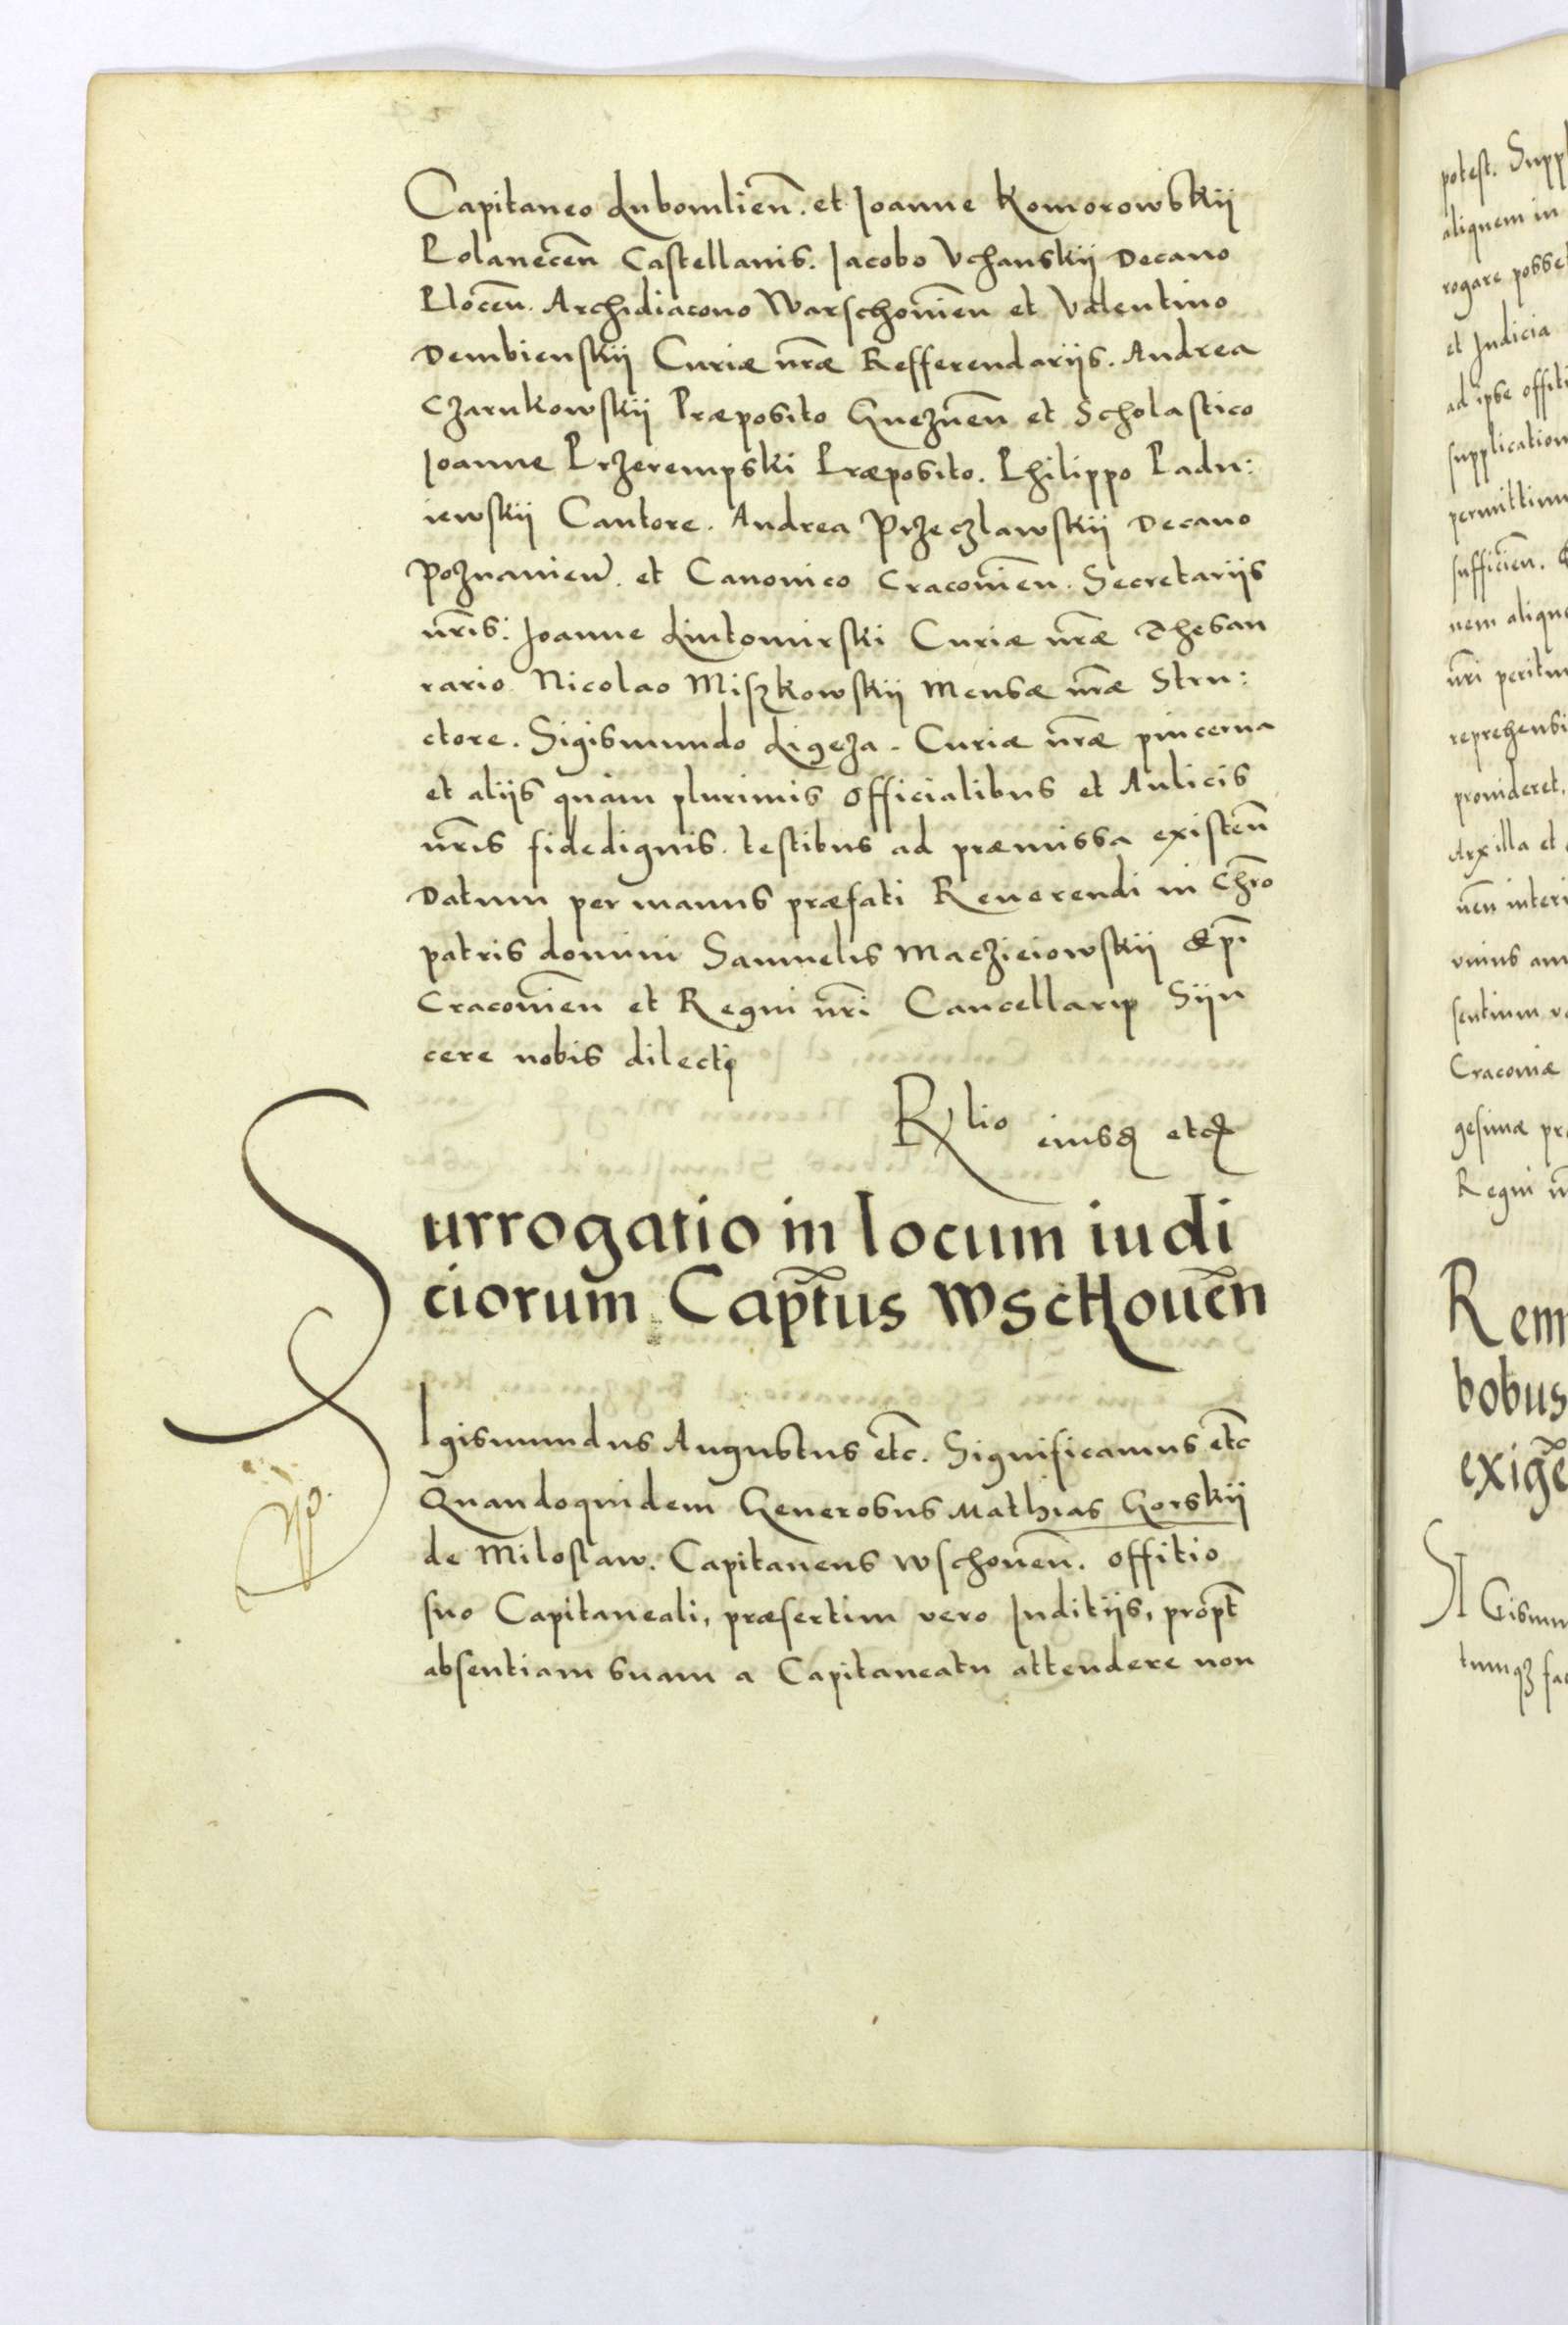 Capitaneo Lubomlien̄. et Joanne Komorowskij
Polanecen̄ Castellanis. Jacobo Vchanskij Decano
Plocen̄. Archidiacono Warschovien̄ et Valentino
Dembienskij Curiæ nr̄æ Refferendarijs. Andrea
Czarnkowskij Præposito Gneznen̄ et Scholastico
Joanne Przerempski Præposito. Philippo Padn:
iewskij Cantore. Andrea Przeczlawskij Decano
Poznanien̄. et Canonico Cracovien̄. Secretarijs
nr̄is: Joanne Lutomirski Curiæ nr̄æ Thesau
rario Nicolao Miszkowskij Mensæ nr̄æ Stru:
ctore. Sigismundo Ligeza. Curiæ nr̄æ pincerna
et alijs quàm plurimis officialibus et Aulicis
nr̄is fidedignis. testibus ad præmissa existen̄
Datum per manus præfati Reverendi in Chr̄o
patris domini Samuelis Maczieiowskij Ep̄i
Cracovien̄ et Regni nr̄i Cancellarij Sijn
cere nobis dilecti
Rlio eiusd etc
Surrogatio in locum iudi
ciorum Cap̄tus Wschoven̄
SIgismundus Augustus et̄c. Significamus et̄c
Quandoquidem Generosus Mathias Gorskij
de Miloslaw. Capitaneus Wschoven̄. offitio
suo Capitaneali, præsertim vero Juditijs, prop̄t
absentiam suam a Capitaneatu attendere non
potest. Suppl
aliquem in
rogare posse
et Judicia
ad ipse offiti
supplication
permittim
sufficien̄.
nem alique
nr̄i peritu
reprehensi
provideret.
Arx illa et
nen̄ interi
vnius ann
sentium v
Cracoviæ
gesimæ pr
Regni n̄
Rem
bobus
exigē
SI Gismu
tumqȝ fac